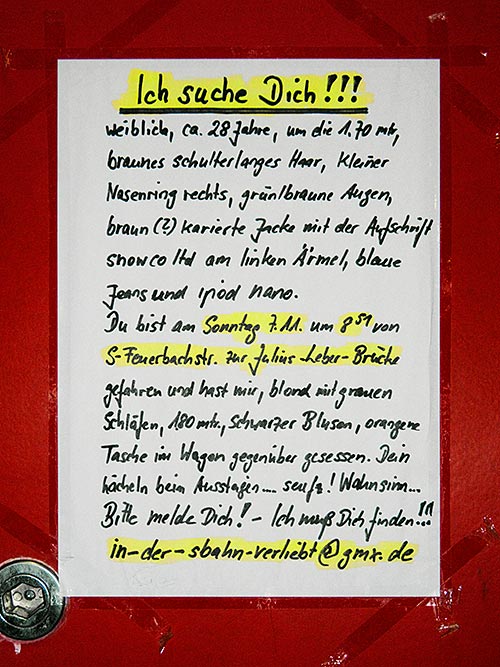 Ich suche Dich!!!
weiblich, ca. 28 Jahre, um die 1.70 mtr,
braunes schulterlanges Haar, kleiner
Nasenring rechts, grün/braune Augen,
braun (?) karierte Jacke mit der Aufschrift
snowco ltd am linken Ärmel, blaue
Jeans und ipod nano.
Du bist am Sonntag 7.11. um 8⁵¹ von
S-Feuerbachstr. zur Julius-Leber-Brücke
gefahren und hast mir, blond mit grauen
Schläfen, 180 mtr., schwarzer Bluson, orangene
Tasche im Wagen gegenüber gesessen. Dein
lächeln beim Aussteigen.... seufz! Wahnsinn...
Bitte melde Dich! - Ich muß Dich finden..!!
in-der-sbahn-verliebt@gmx.de